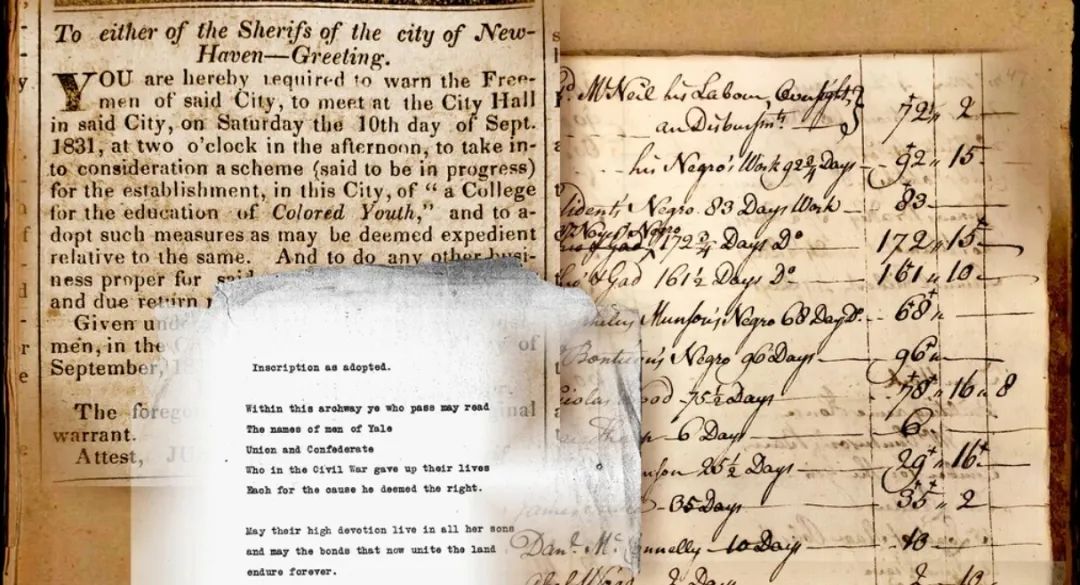 To either of the Sherifs of the city of New-
Haven—Greeting.
YOU are hereby required to warn the Free-
men of said City, to meet at the City Hall
in said City, on Saturday the 10th day of Sept.
1831, at two o'clock in the afternoon, to take in-
to consideration a scheme (said to be in progress)
for the establishment, in this City, of "a College
for the education of Colored Youth," and to a-
dopt such measures as may be deemed expedient
relative to the same. And to do any other busi-
ness proper for said
and due return
Given under
men, in the
September,
The
warrant.
Attest,
Inscription as adopted.
Within this archway ye who pass may read
The names of men of Yale
Union and Confederate
Who in the Civil War gave up their lives
Each for the cause he deemed the right.
May their high devotion live in all her sons
and may the bonds that now unite the land
endure forever.
McNeil his Labour, Oversight,
an Disbursmts. 72 " 2
his Negro's Work 92 3/4 Days 92 " 15
Negro 83 Days Work 83
172 3/4 Days Do 172 " 15
Gad 161 1/2 Days Do 161 " 10
Munson's Negro 68 Days Do 68 "
Negro 96 Days 96 "
75 1/2 Days 78 " 16 " 8
6 Days 6
25 1/2 Days 29 " 16
35 Days 35 " 2
Danl. Mc nnelly 10 Days 10
Days 2 10